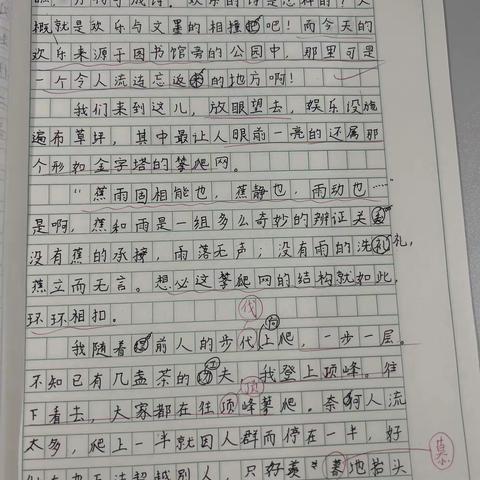 概就是欢乐与文墨的相撞吧!而今天的
欢乐来源于图书馆旁的公园中,那里可是
一个令人流连忘返的地方啊!
我们来到这儿,放眼望去,娱乐设施
遍布草坪,其中最让人眼前一亮的还属那
个形如金字塔的攀爬网。
“蕉雨固相能也,蕉静也,雨动也……
是啊,蕉和雨是一组多么奇妙的辨证关
没有蕉的承接,雨落无声;没有雨的洗礼,
蕉立而无言。想必这攀爬网的结构就如此,
环环相扣。
伐
我随着前人的步代向上爬,一步一层。
不知已有几盏茶的工夫,我登上顶峰。往
顶
下看去,大家都在往顶峰攀爬。奈何人流
太多,爬上一半就因人群而停在一半,好
慕
别人,只好羡慕地抬头